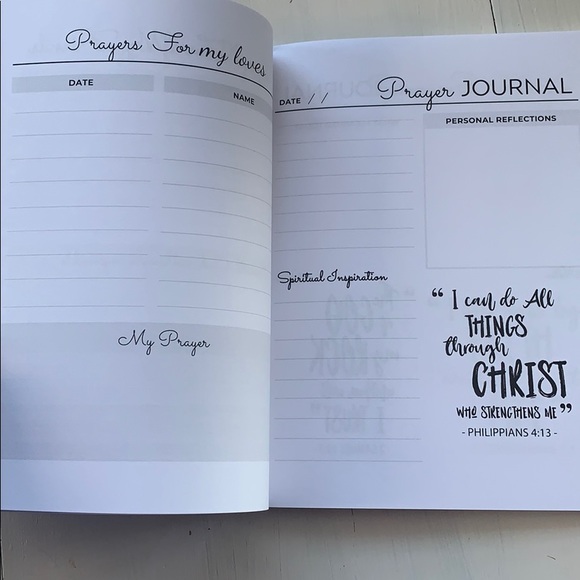 Prayers For my loves
DATE
NAME
My Prayer
DATE / / Prayer JOURNAL
PERSONAL REFLECTIONS
Spiritual Inspiration
“ I can do All
THINGS
through
CHRIST
WHO STRENGTHENS ME ”
- PHILIPPIANS 4:13 -